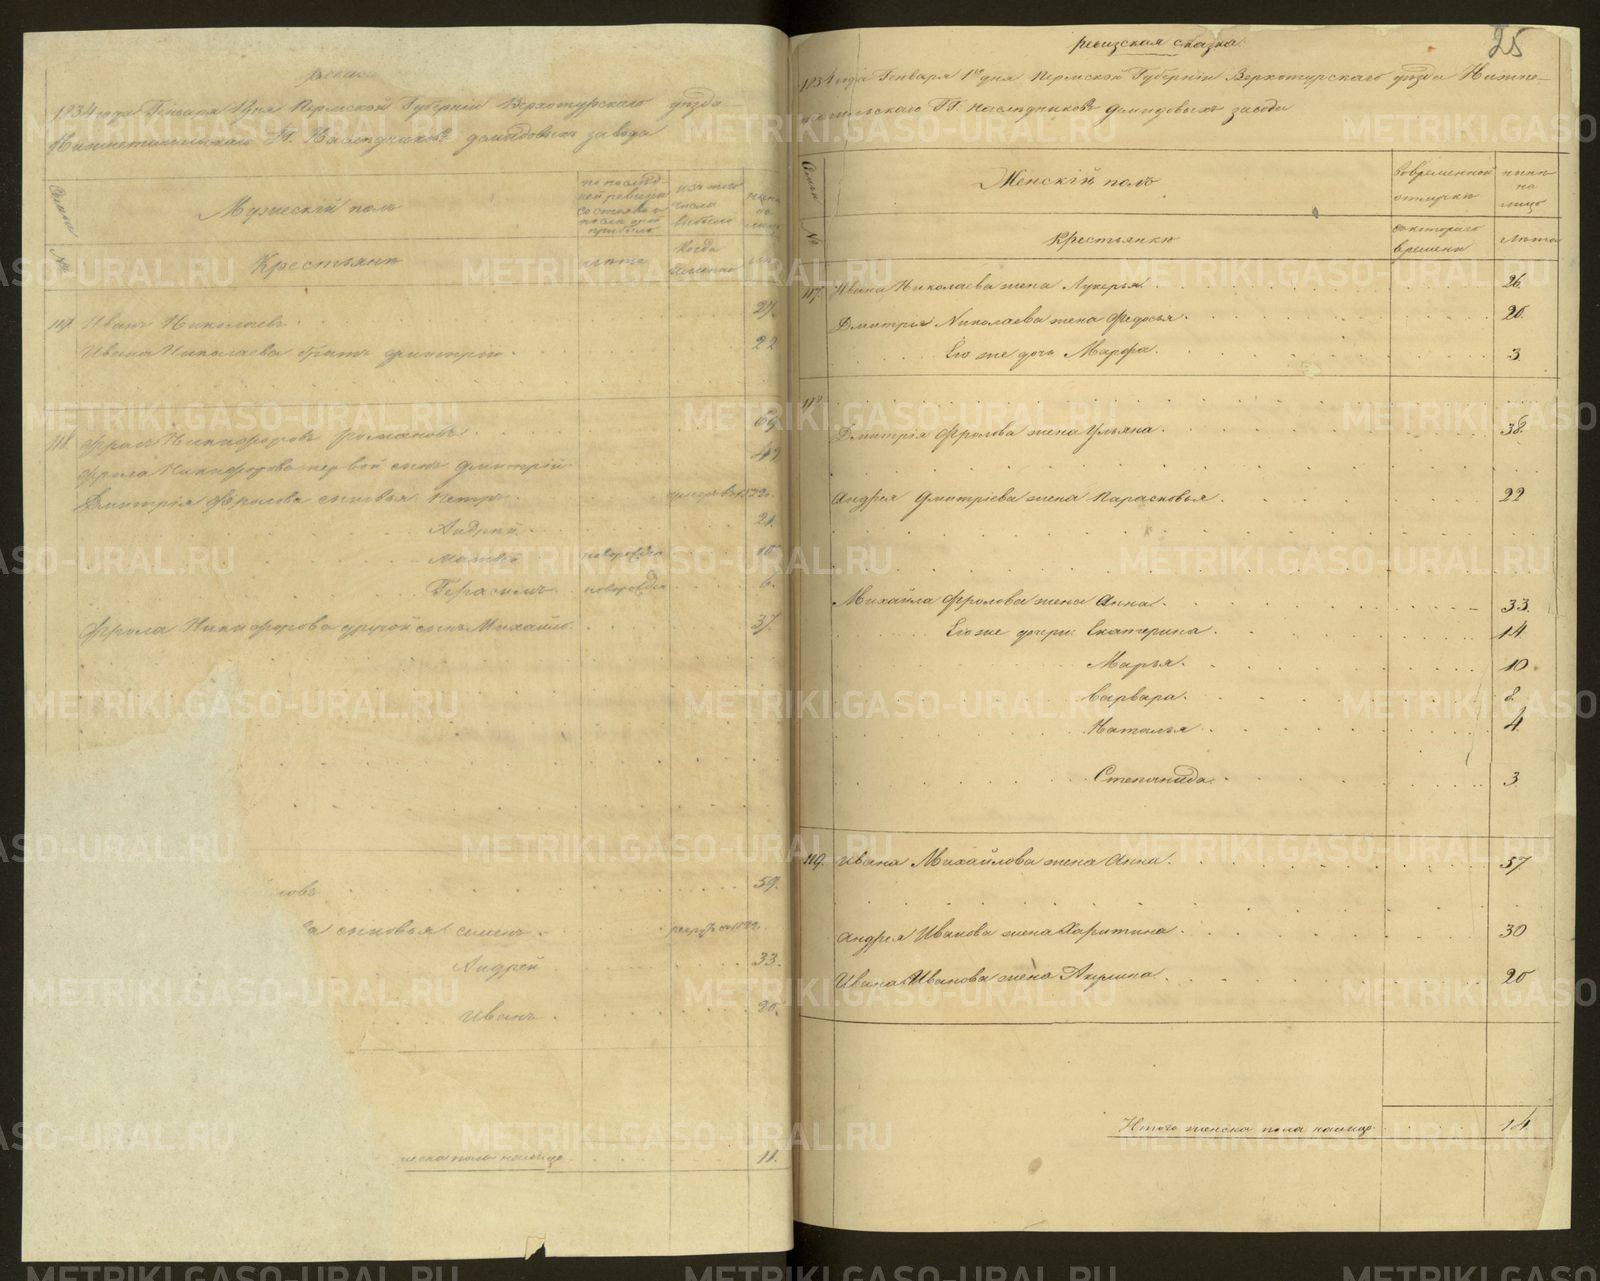 1834 года Генваря 1 дня Пермской Губернiи Верхотурскаго уезда
Нижнетагильскаго ГГ. Наследниковъ Демидовыхъ завода
Семьи
Мужескiй полъ
по послед-
ней ревизiи
состояло и
после оной
прибыло
изъ того
числа
выбыло
ныне
на
лицо
№
Крестьяне
лета
Когда
именно
лета
117. Иванъ Николаевъ. 27.
Ивана Николаева братъ Дмитрiй. 22
118. Фролъ Никифоровъ Романовъ. 69
Фрола Никифорова первой сынъ Дмитрiй 42
Дмитрiя Фролова сыновья Петръ.
Андрей. 21.
Матвей новорожден 15
Герасимъ новорожден 6.
Фрола Никифорова другой сынъ Михайло. 37.
ловъ 59.
ва сыновья Семенъ.
Андрей 33.
Иванъ. 20.
ческа полъ налицо 11.
25
ревизская сказка
1834 года Генваря 1го дня Пермской Губернiи Верхотурскаго уезда Нижне-
тагильскаго ГГ. Наследниковъ Демидовыхъ завода
Семьи
Женскiй полъ
Во временной
отлучке
ныне
на
лицо
№
Крестьянки
съ котораго
времени
Лета
117. Ивана Николаева жена Лукерья. 26.
Дмитрiя Николаева жена Федосья. 20.
Его же дочь Марфа. 3
118.
Дмитрiя Фролова жена Ульяна. 38.
Андрея Дмитрiева жена Парасковья. 22
Михайла Фролова жена Анна. 33.
Его же дочери: Екатерина. 14.
Марья. 10
Варвара. 8.
Наталья. 4
Степанида. 3
119. Ивана Михайлова жена Анна. 57
Андрея Иванова жена Харитина. 30
Ивана Иванова жена Акулина. 20
Итого женска пола налицо 14
METRIKI.GASO-URAL.RU